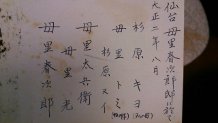 仙台 毋里春次郎邸ニ於テ
大正二年八月
杉原キヨ
毋里トミ
杉原スイ
毋里太兵衛
毋里光
毋里春次郎